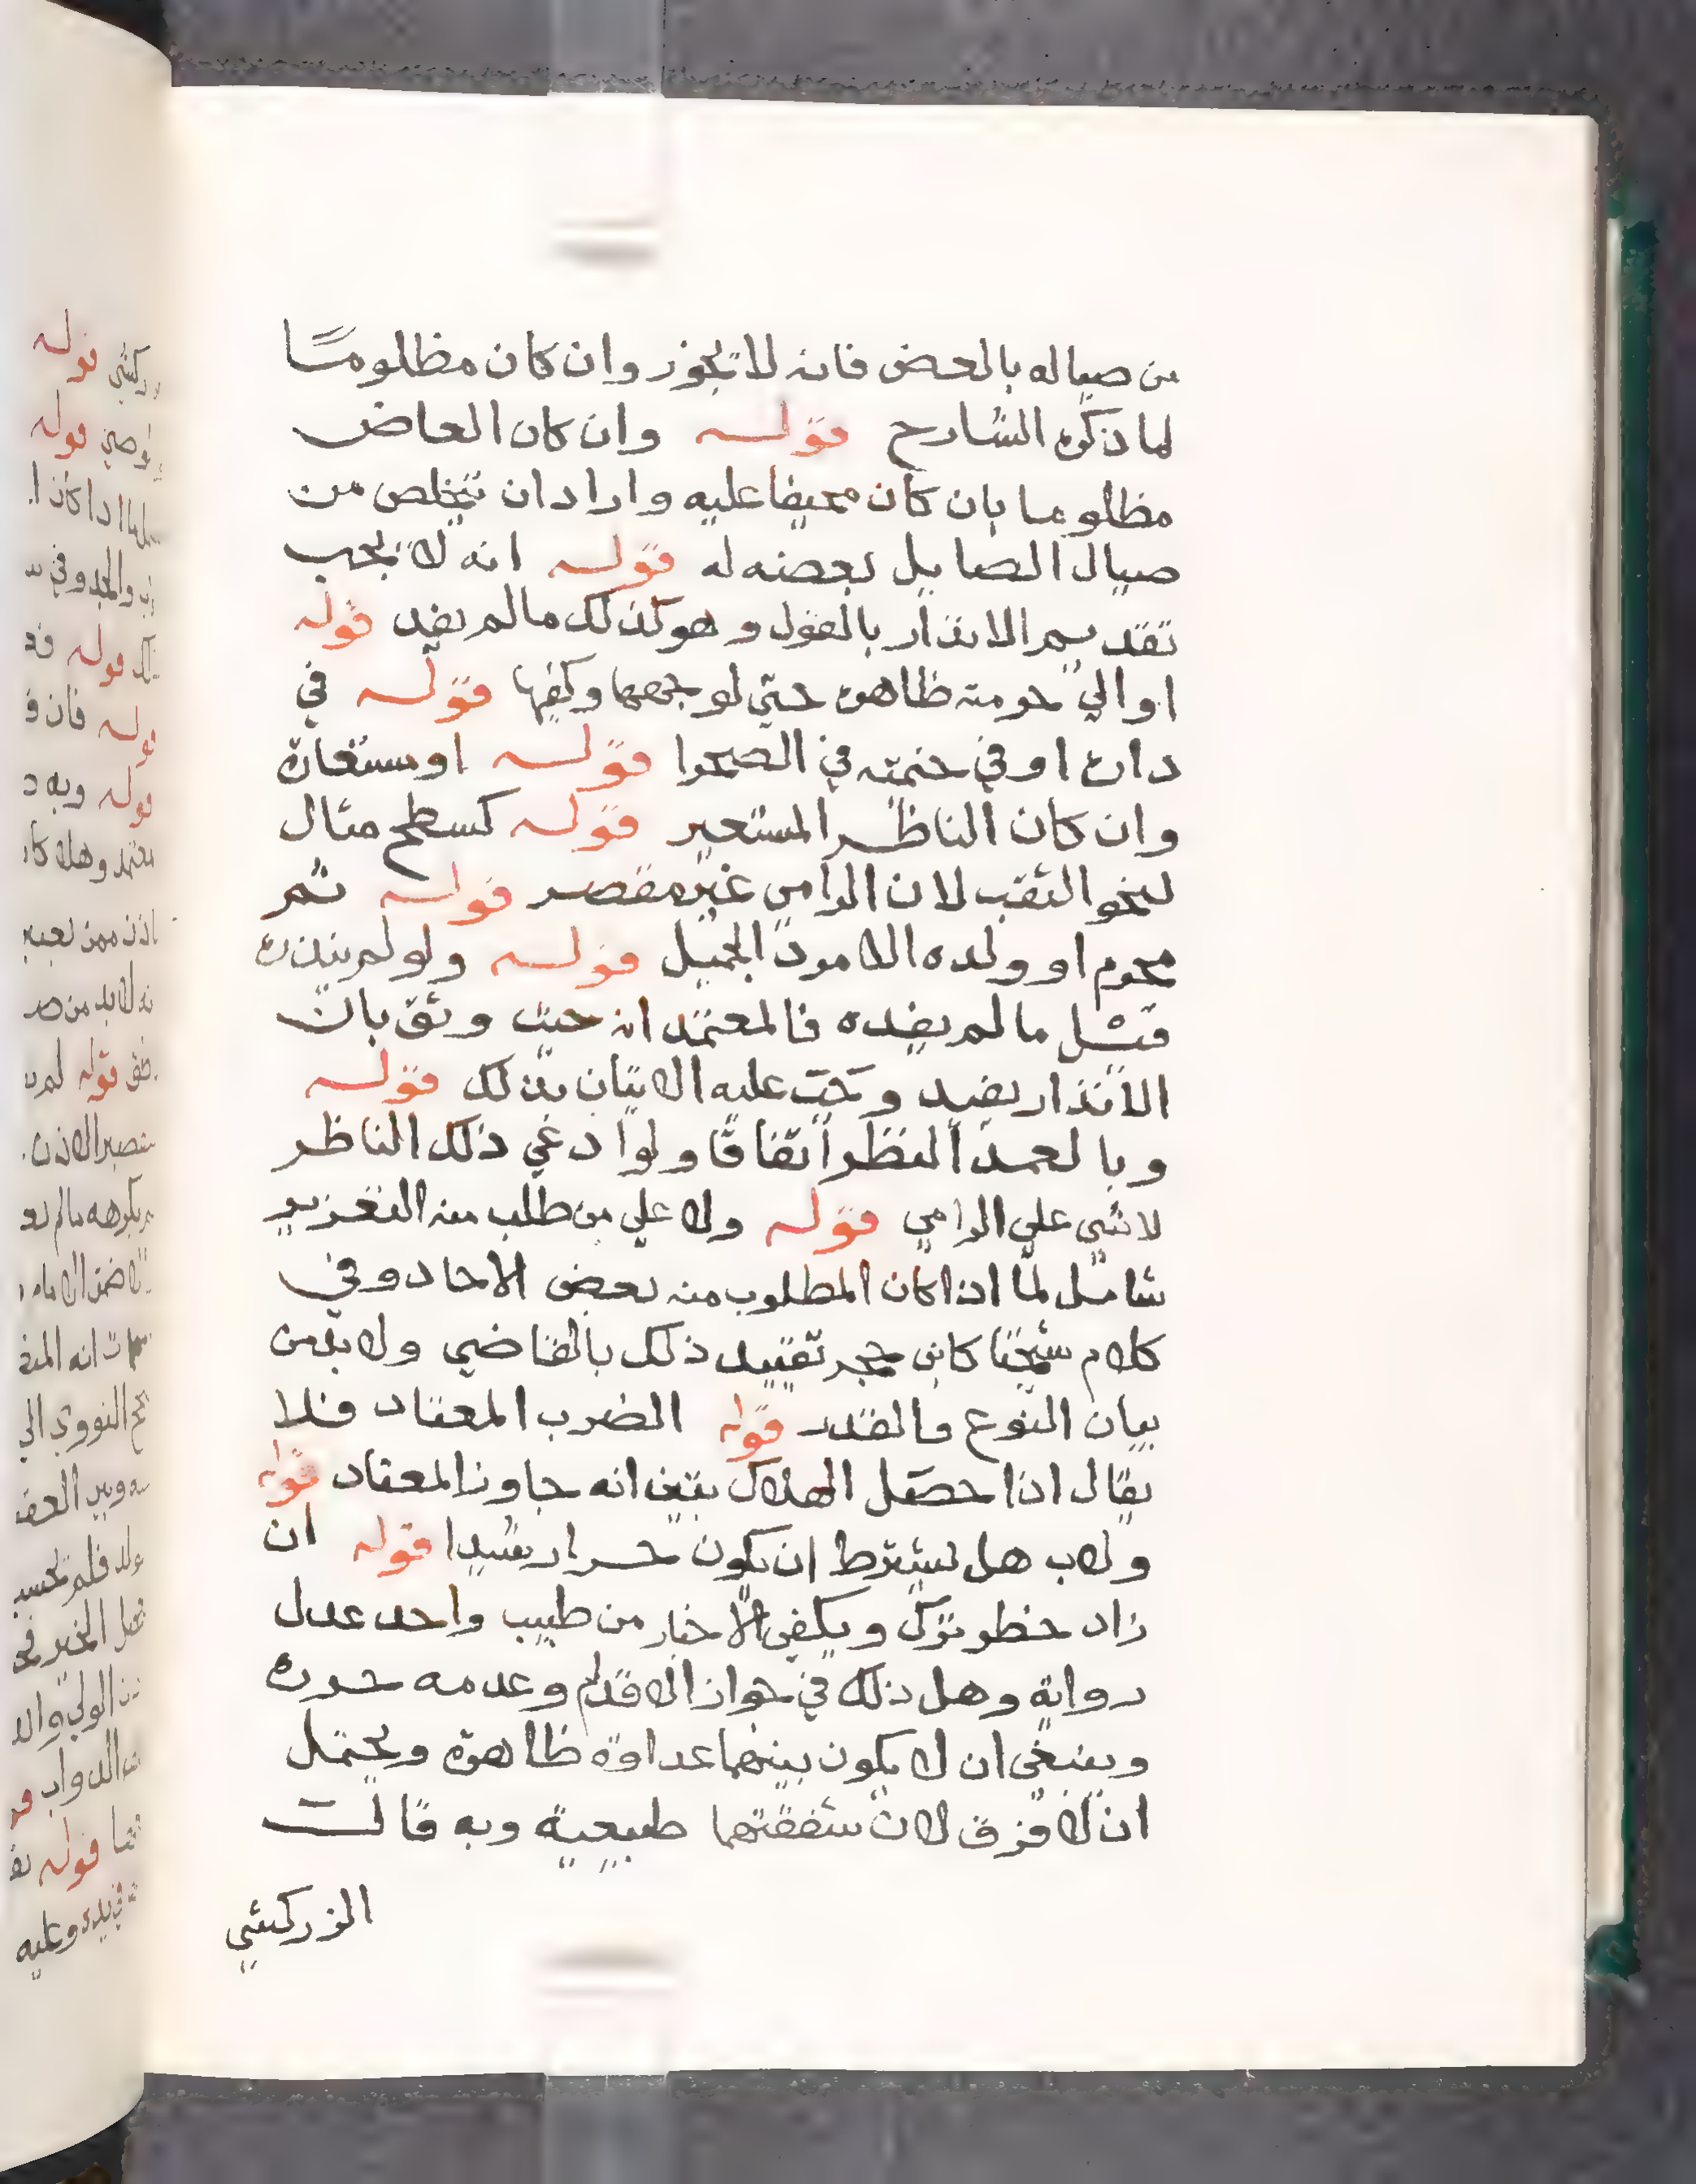 من صياله بالعض فانه لا تجوز وان كان مظلومًا
لما ذكره الشارح قوله وان كان العاض
مظلوما بان كان محيفا عليه واراد ان يتخلص من
صيال الصايل بعضه له قوله انه لا يجب
تقديم الانذار بالقول وهو كذلك مالم يفد قوله
او الي حرمته ظاهره حتي لو وجهها وكفيها قوله في
داره او في خيمته في الصحرا قوله او مستعارة
وان كان الناظر المستعير قوله كسطح مثال
لنحو الثقب لان الرامي غير مقصر قوله ثم
محرم او ولده الامرد الجميل قوله ولو لم ينذره
قبل مالم يفده فالمعتمد انه حيث وثق بان
الانذار يفيد وجب عليه الاتيان بذلك قوله
وبالعمد النظر اتفاقا ولو ادعي ذلك الناظر
لا شي علي الرامي قوله ولا علي من طلب منه التعزير
شامل لما اذا كان المطلوب منه بعض الاحاد وفي
كلام شيخنا كابن حجر تقييد ذلك بالقاضي ولا بد من
بيان النوع والقدر قوله الضرب المعتاد فلا
يقال اذا حصل الهلاك تبين انه جاوز المعتاد قوله
ولاب هل يشترط ان يكون حرا رشيدا قوله ان
زاد خطر ترك ويكفي الاخبار من طبيب واحد عدل
رواية وهل ذلك في جواز الاقدام وعدمه حرره
وينبغي ان لا يكون بينهما عداوة ظاهرة ويحتمل
ان لا فرق لان شفقتهما طبيعية وبه قالت
الزركشي